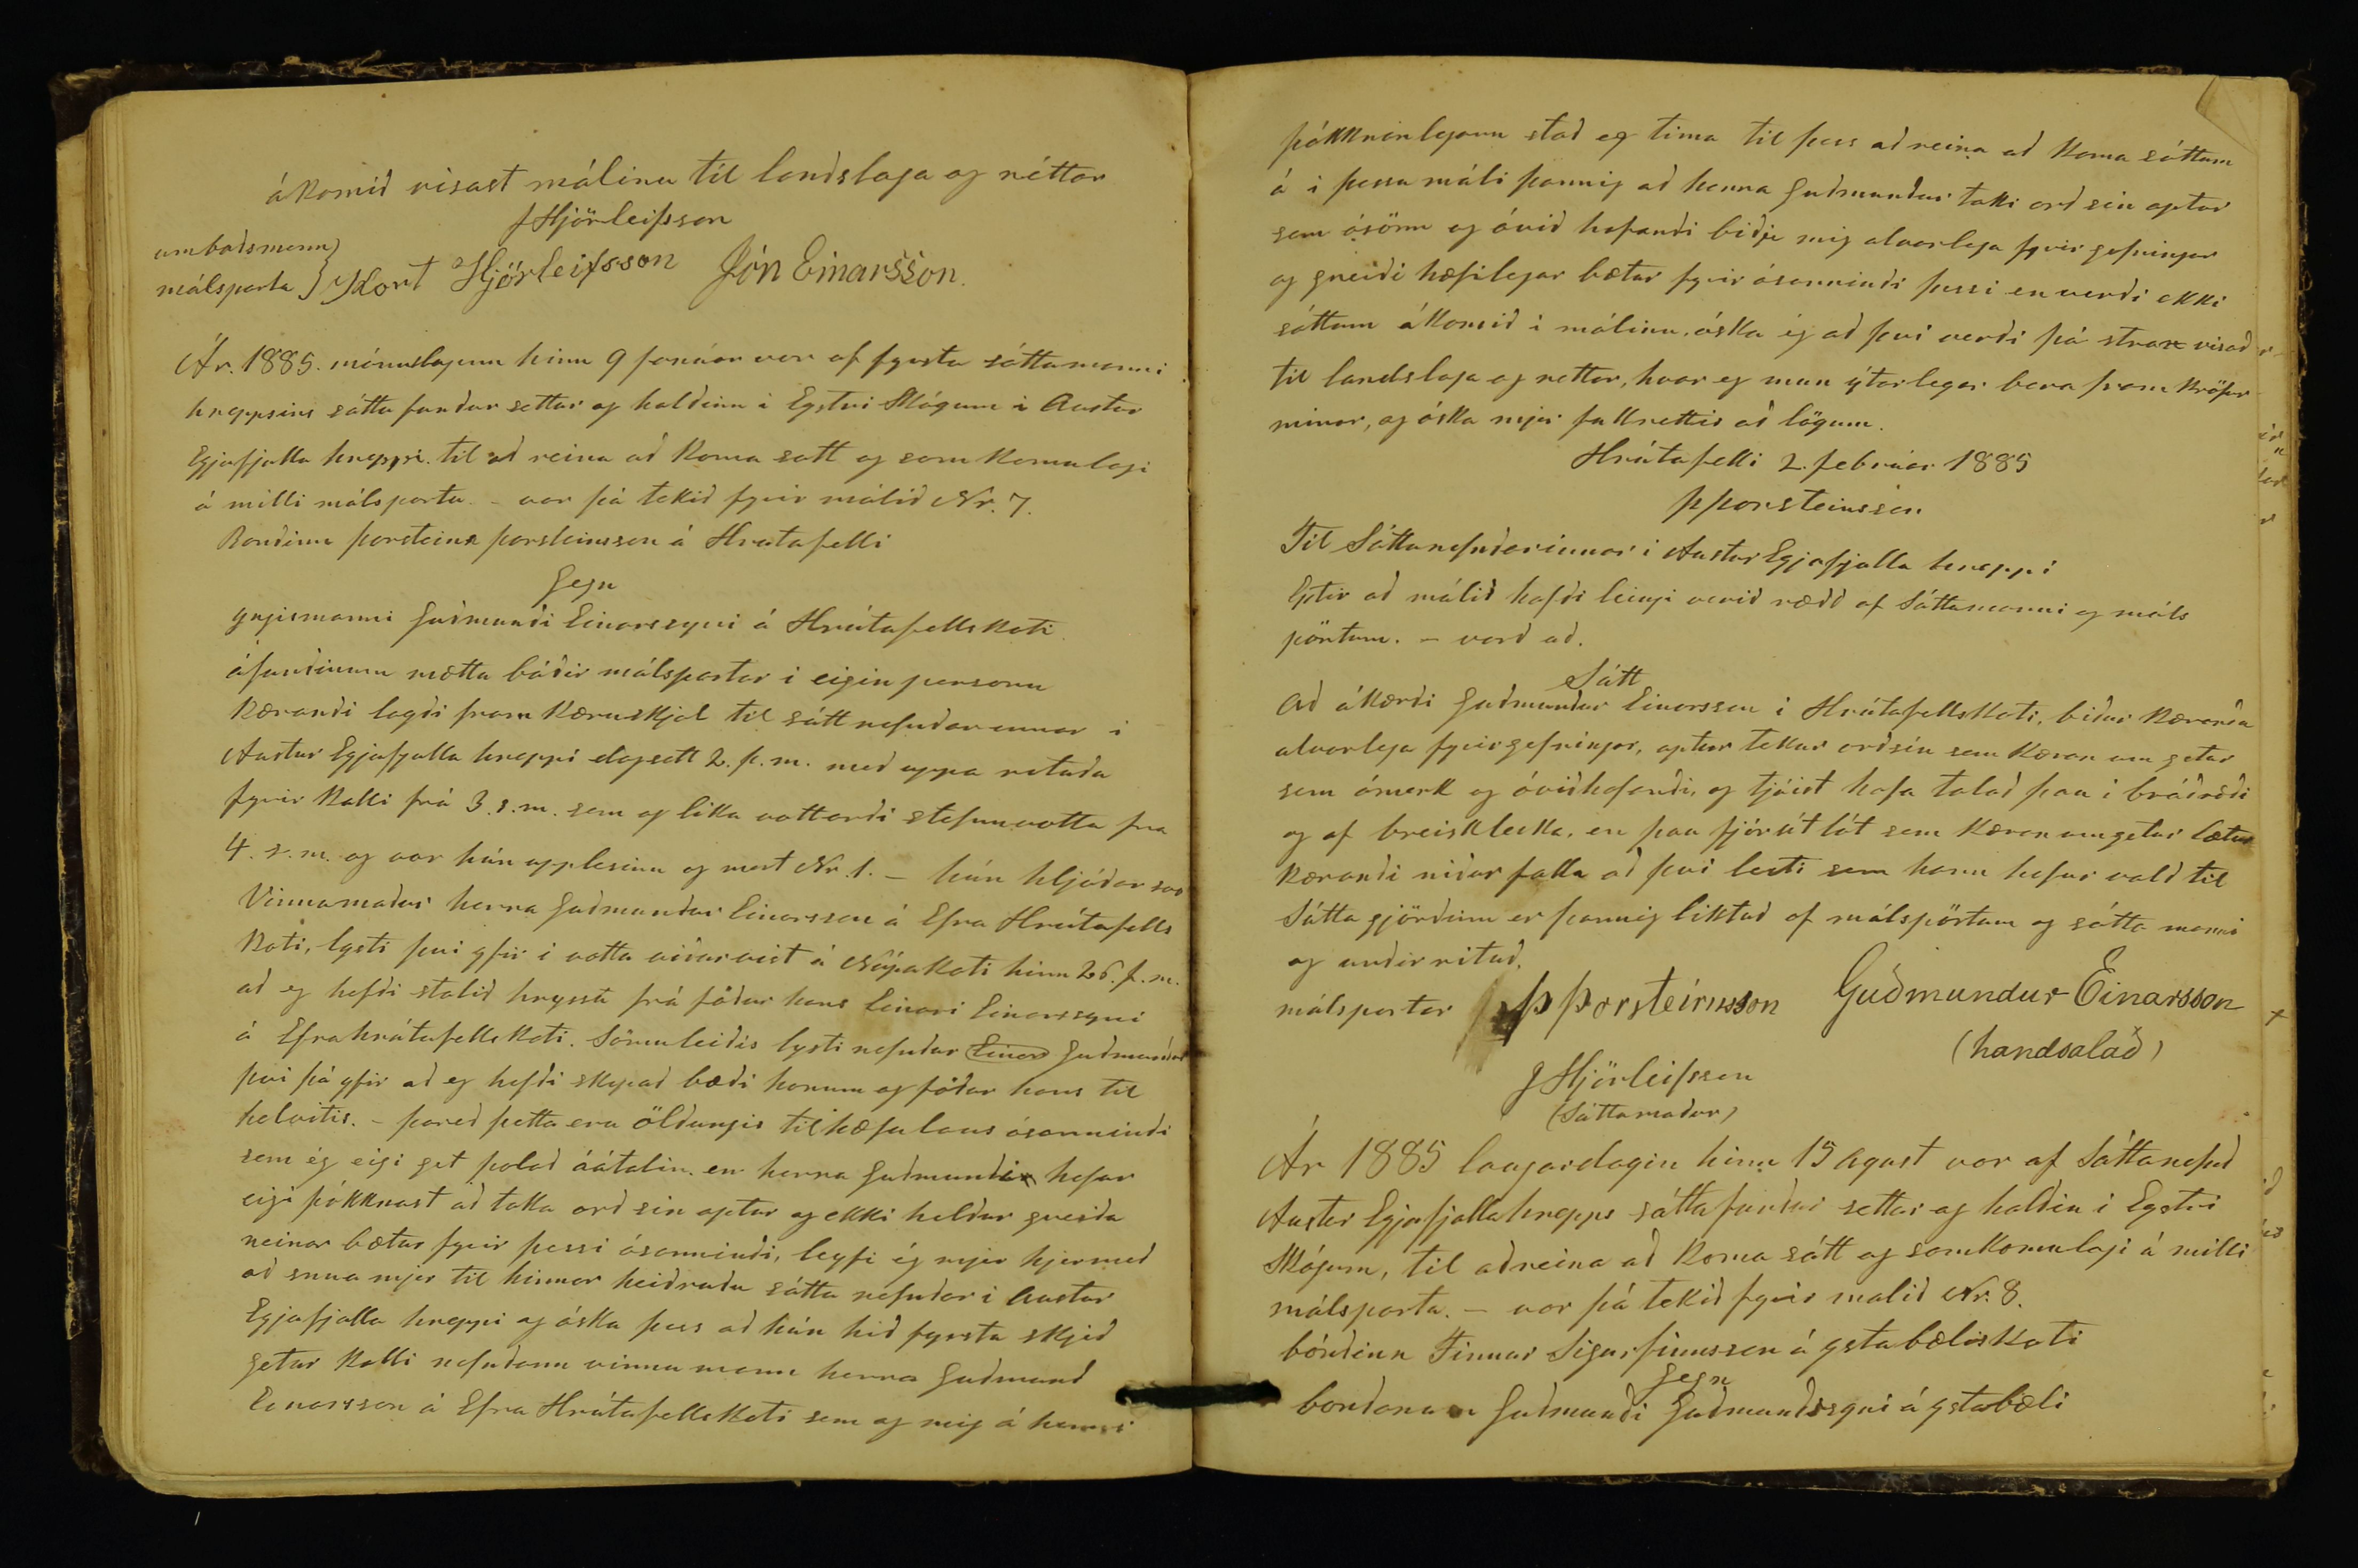 ákomið visast málinu til landslaga og réttar
JHjörleifsson
umboðsmenn
málsparta } Kort Hjörleifsson Jón Einarsson.
Ár. 1885. mánudaginn hinn 9 fanúar var af fyrsta sáttamanni
hreppsins sátta fundur settur og haldinn i Eystri Skógum i Austur
Eyjafjalla hreppi. til að reina að koma satt og samkomulagi
á milli málsparta. - var þá tekið fyrir málið Nr. 7.
Bondinn þorsteinn þorsteinsson á Hrutafelli
Gegn
yngismanni Guðmundi Einarssyni á Hrútafellskoti
áfundinum mættu báðir málspartar i eigin personu
Kærandi lagði fram kæruskjal til sáttnefndarennar i
Austur Eyjafjalla hreppi dagsett 2. þ.m. með uppa rotuðu
fyrir kalli frá 3. s.m. sem og lika vottorði stefnuvotta fra
4. s.m. og var hún upplesinn og mert Nr. 1. - hún hljóðar svo
Vinnumaður herra Guðmundur Einarsson á Efra Hrútafells
koti, lysti þvi yfir i votta viðurvist á Núpakoti hinn 26. f.m.
að eg hefði stolið hryssu frá föður hans Einari Einarssyni
á Efrahrútafellskoti. Sömuleiðis lysti nefndur Einar Guðmundur
þvi þá yfir að eg hefði skipað bæði honum og föður hans til
helvitis. - þareð þetta eru öldungis tilhæfulaus ósannindi
sem ég eigi get þolað óátalin. en herra Guðmundur hefur
eigi þókknast að taka orð sin aptur og ekki heldur greiða
neinar bætur fyrir þessi ósannindi, leyfi ég mjer hjermeð
að snua mjer til hinnar heiðruðu sátta nefndar i Austur
Eyjafjalla hreppi og óska þess að hún hið fyrsta skjeð
getur kalli nefndann vinnu mann herra Guðmund
Einarsson á Efra Hrútafellskoti sem og mig á henni
þókknanlegann stað og tima til þess að reina að koma sáttum
á i þessu máli þannig að herra Guðmundur taki orð sin aptur
sem ósönn og óvið hafandi biðji mig alvarlega fyrirgefningar
og greiði hæfilegar bætur fyrir ósannindi þessi en verði ekki
sáttum ákomið i málinu, óska ég að þvi verði þá strax visað
til landslaga og rettar, hvar eg mun ýtarlegar bera fram kröfur
minar, og óska mjer fullrettis að lögum.
Hrútafelli 2. februar 1885
þ þorsteinsson
Til Sáttanefndarinnar i Austur Eyjafjalla hreppi
Eptir að málið hafði leingi verið rædd af Sáttamanni og máls
pörtum. - varð að.
Sátt
Að ákærði Guðmundur Einarsson i Hrútafellskoti, biður kæranda
alvarlega fyrirgefningar, aptur tekur orðsin sem kæran um getur
sem ómerk og óviðhafandi, og tjáist hafa talað þau i bráðræði
og af breiskleika, en þau fjárút lát sem kæran umgetur lætur
kærandi niður falla að þvi leiti sem hann hefur vald til
Sátta gjörðinn er þannig liktuð af málspörtum og sátta manni
og undir rituð.
málspartar þ þorsteinsson Guðmundur Einarsson
(handsalað)
JHjörleifsson
(Sáttamaður)
Ár 1885 laugardagin hinn 15 Agust var af Sáttanefnd
Austur Eyjafjallahrepps sáttafundur settur og haldin i Eystri
Skógum, til aðreina að koma sátt og samkomulagi á milli
málsparta. - var þá tekið fyrir malið Nr. 8.
bóndinn Finnur Sigurfinnsson á ystabæliskoti
Gegn
bondanum Guðmundi Guðmundssyni á ystabæli